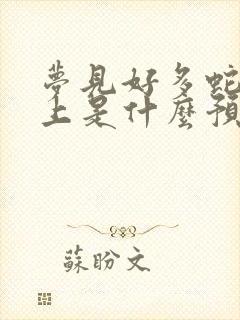 夢見好多蛇
上是什麼預
蘇盼文